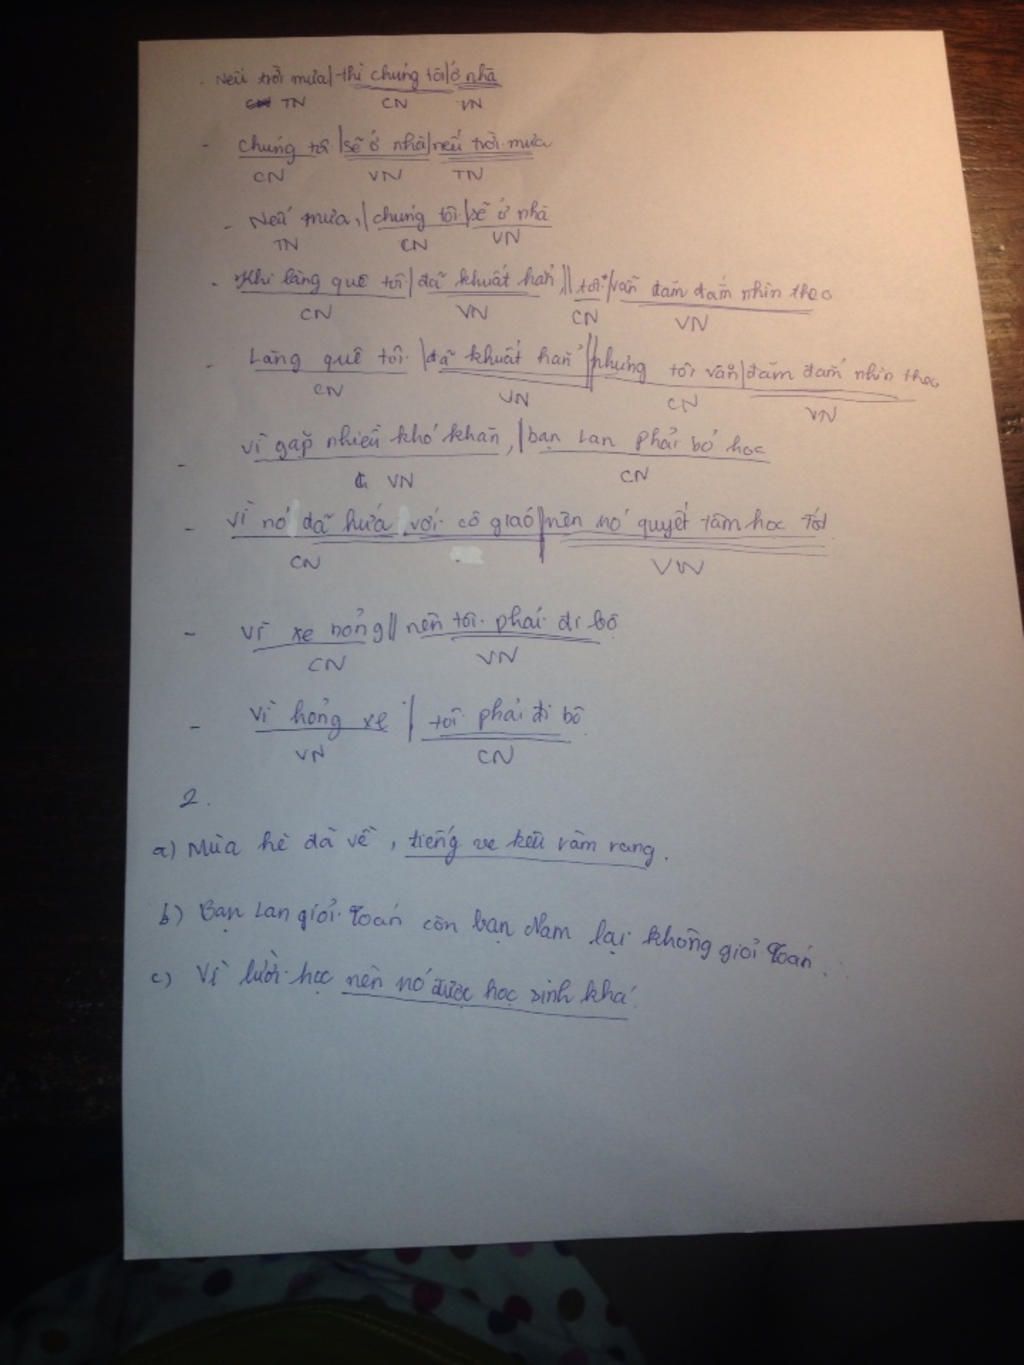 - Nếu trời mưa/ thì chúng tôi/ở nhà
TN CN VN
- Chúng tôi /sẽ ở nhà/nếu trời mưa
CN VN TN
- Nếu mưa,/chúng tôi/sẽ ở nhà
TN CN VN
- Khi làng quê tôi/ đã khuất hẳn,// tôi /vẫn đăm đắm nhìn theo
CN VN CN VN
- Làng quê tôi /đã khuất hẳn //nhưng tôi vẫn/đăm đắm nhìn theo
CN VN CN VN
- Vì gặp nhiều khó khăn, /bạn Lan phải bỏ học
VN CN
- Vì nó đã hứa với cô giáo/nên nó quyết tâm học tốt
CN VN
- Vì xe hỏng// nên tôi phải đi bộ
CN VN
- Vì hỏng xe / tôi phải đi bộ
VN CN
2.
a) Mùa hè đã về, tiếng ve kêu râm rang.
b) Bạn Lan giỏi Toán còn bạn Nam lại không giỏi Toán.
c) Vì lười học nên nó được học sinh khá